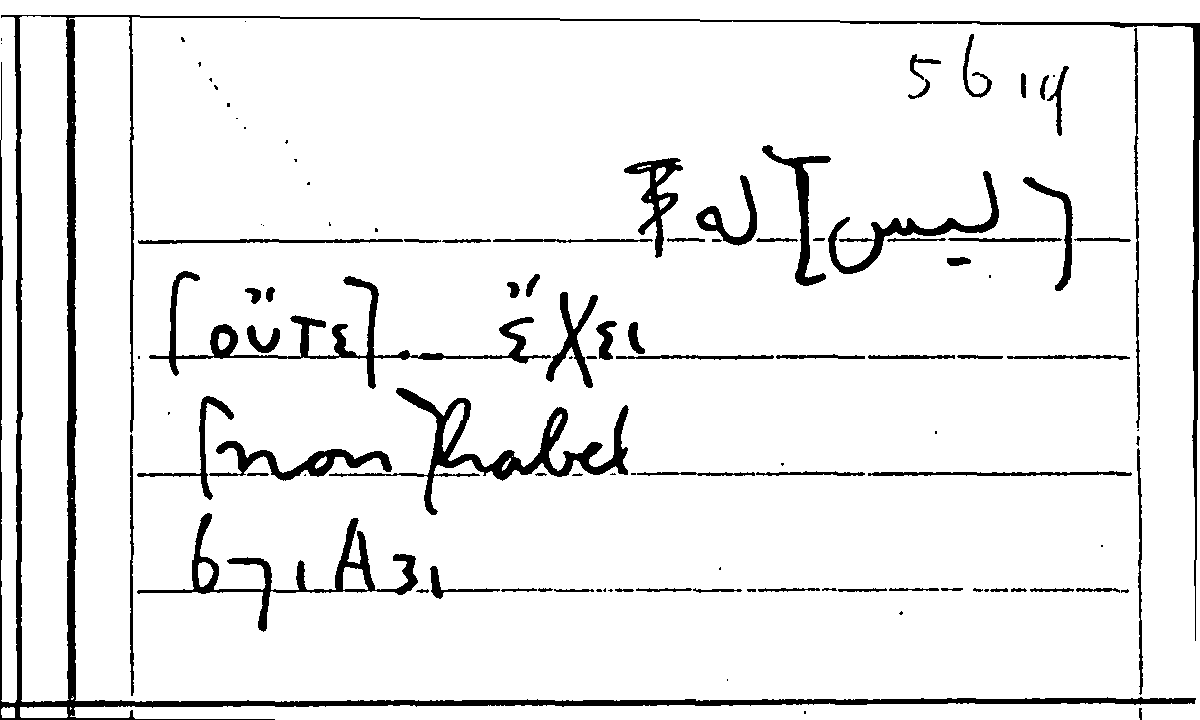 56,19
[ليس] له
[οὔτε] ... ἔχει
[non] habet
671A31